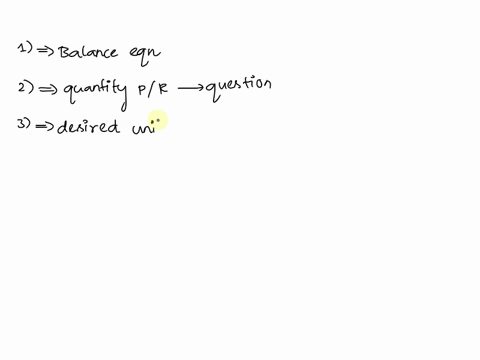 1) ⇒ Balance eqn
2) ⇒ quantity P/R → question
3) ⇒ desired uni